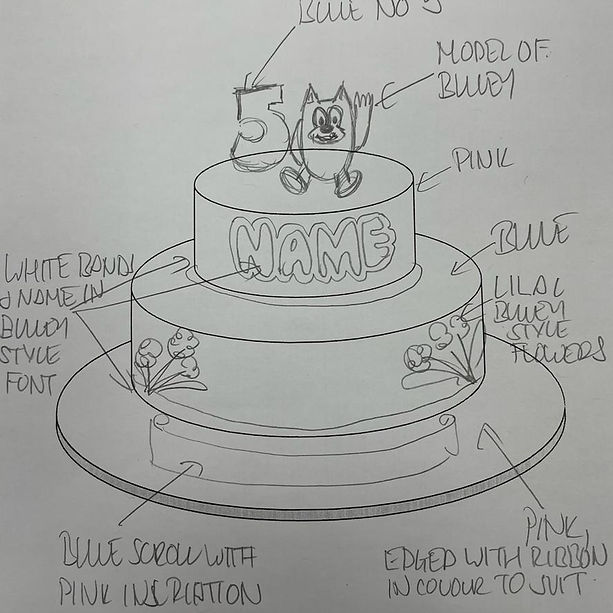 BLUE NO 5
MODEL OF
BLUEY
5
PINK
NAME
BLUE
WHITE BANDS
& NAME IN
BLUEY
STYLE
FONT
LILAC
BLUEY
STYLE
FLOWERS
BLUE SCROLL WITH
PINK INSCRIPTION
PINK,
EDGED WITH RIBBON
IN COLOUR TO SUIT.